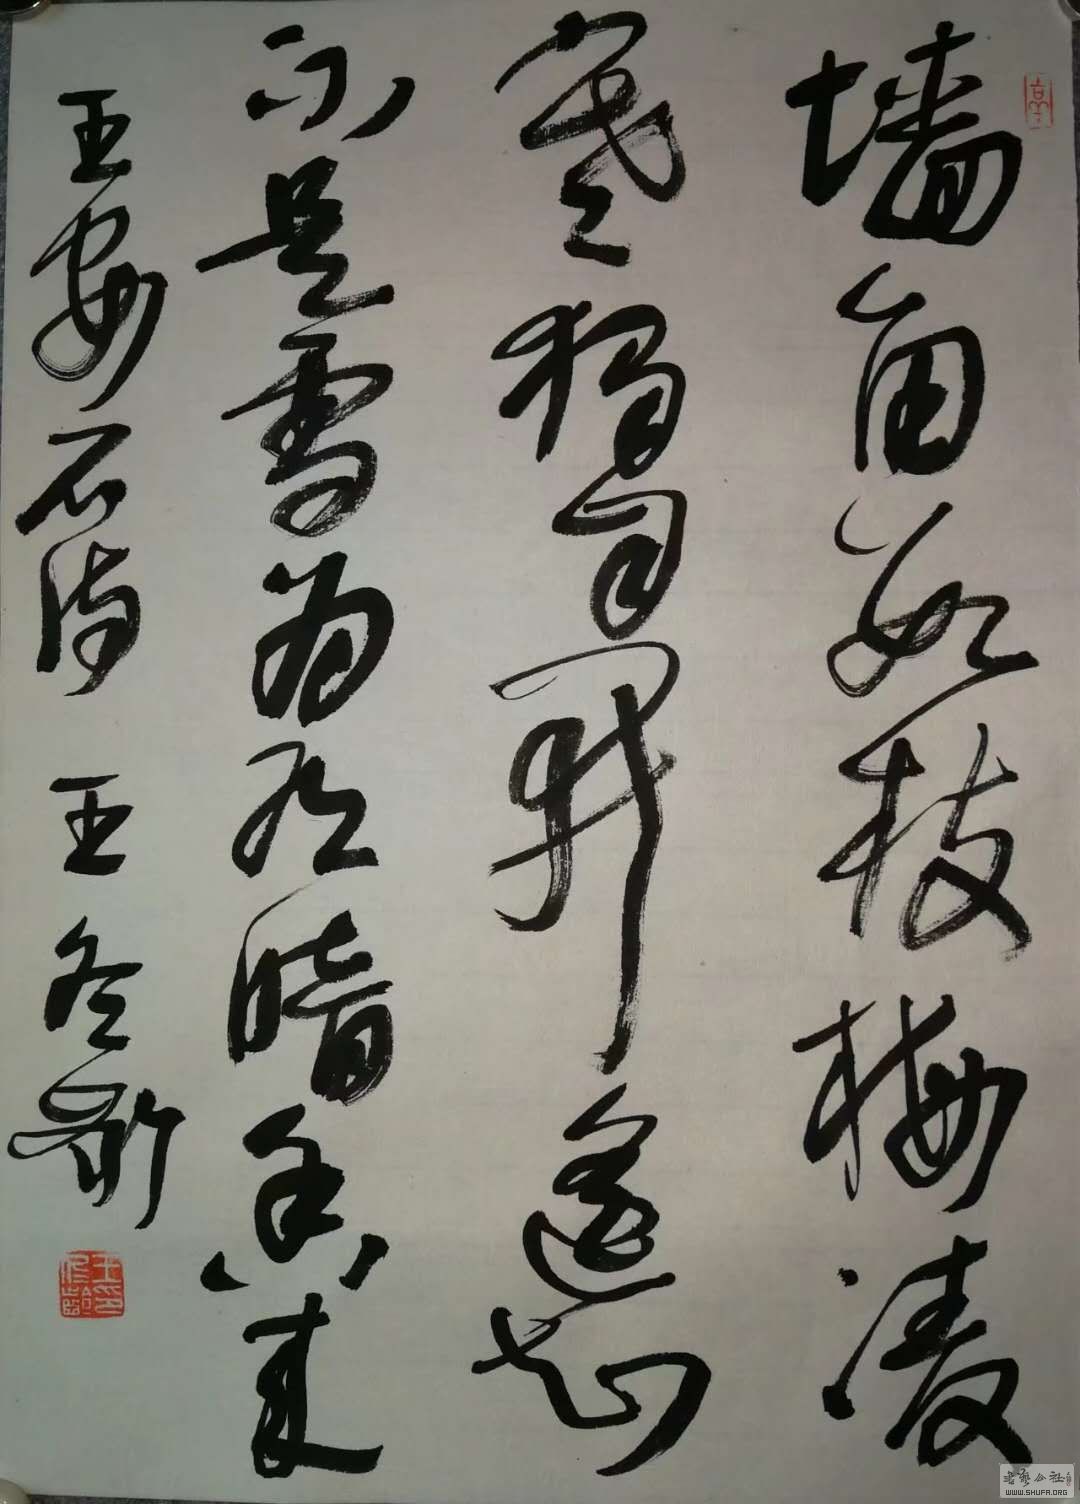 墙角数枝梅凌
寒独自开遥知
不是雪为有暗香来
王安石诗 王冬
书艺公社
WWW.SHUFA.ORG